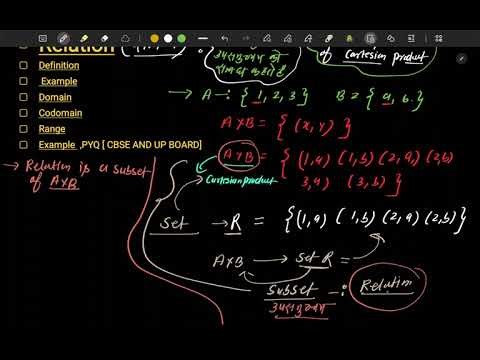 Relation
Definition
Example
Domain
Codomain
Range
Example ,PYQ [ CBSE AND UP BOARD]
→ Relation is a subset
of A×B
उपसमुच्चय को
of Cartesian product
→ A → : { 1, 2, 3 } B = { a, b. }
A×B = { (x, y) }
A×B = { (1, a) (1, b) (2, a) (2, b)
3, a) (3, b) }
Cartesian product
Set → R = { (1, a) (1, b) (2, a) (2, b) }
A×B → Set R =
Subset - : Relation
उपसमुच्चय